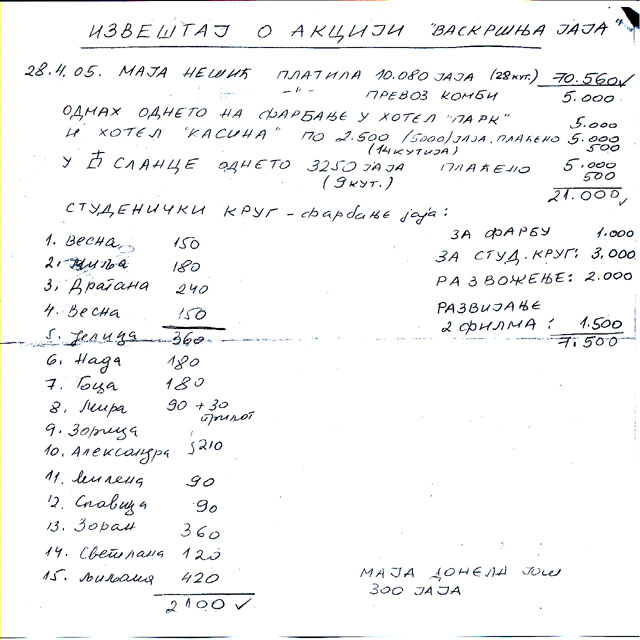 ИЗВЕШТАЈ О АКЦИЈИ "ВАСКРШЊА ЈАЈА"
28.4.05. МАЈА НЕШИЋ ПЛАТИЛА 10.080 ЈАЈА (28 КУТ.) 70.560 ✓
-"- ПРЕВОЗ КОМБИ 5.000
ОДМАХ ОДНЕТО НА ФАРБАЊЕ У ХОТЕЛ "ПАРК" 5.000
И ХОТЕЛ "КАСИНА" ПО 2.500 (5000) ЈАЈА. ПЛАЋЕНО 5.000
(14 КУТИЈА) 500
У СЛАНЦЕ ОДНЕТО 3250 ЈАЈА ПЛАЋЕНО 5.000
(9 КУТ.) 500
21.000 ✓
СТУДЕНИЧКИ КРУГ - фарбање јаја:
ЗА ФАРБУ 1.000
ЗА СТУД. КРУГ: 3.000
РАЗВОЖЕЊЕ: 2.000
РАЗВИЈАЊЕ
2 ФИЛМА: 1.500
7.500
1. Весна 150
2. Миља 180
3. Драгана 240
4. Весна 150
5. Јелица 360
6. Нада 180
7. Гоца 180
8. Мира 90 + 30
прилог
9. Зорица
10. Александра 210
11. Милена 90
12. Славица 90
13. Зоран 360
14. Светлана 120
15. Љиљана 420
2100 ✓
МАЈА ДОНЕЛА ЈОШ
300 ЈАЈА